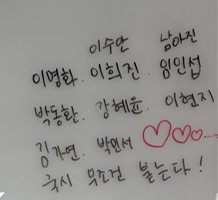 이수안 남아진
이영화. 이희진. 임인섭
박동환. 강혜윤. 이현지
김가연. 박인서 ♡♡♡....
국시 무조건 붙는다!